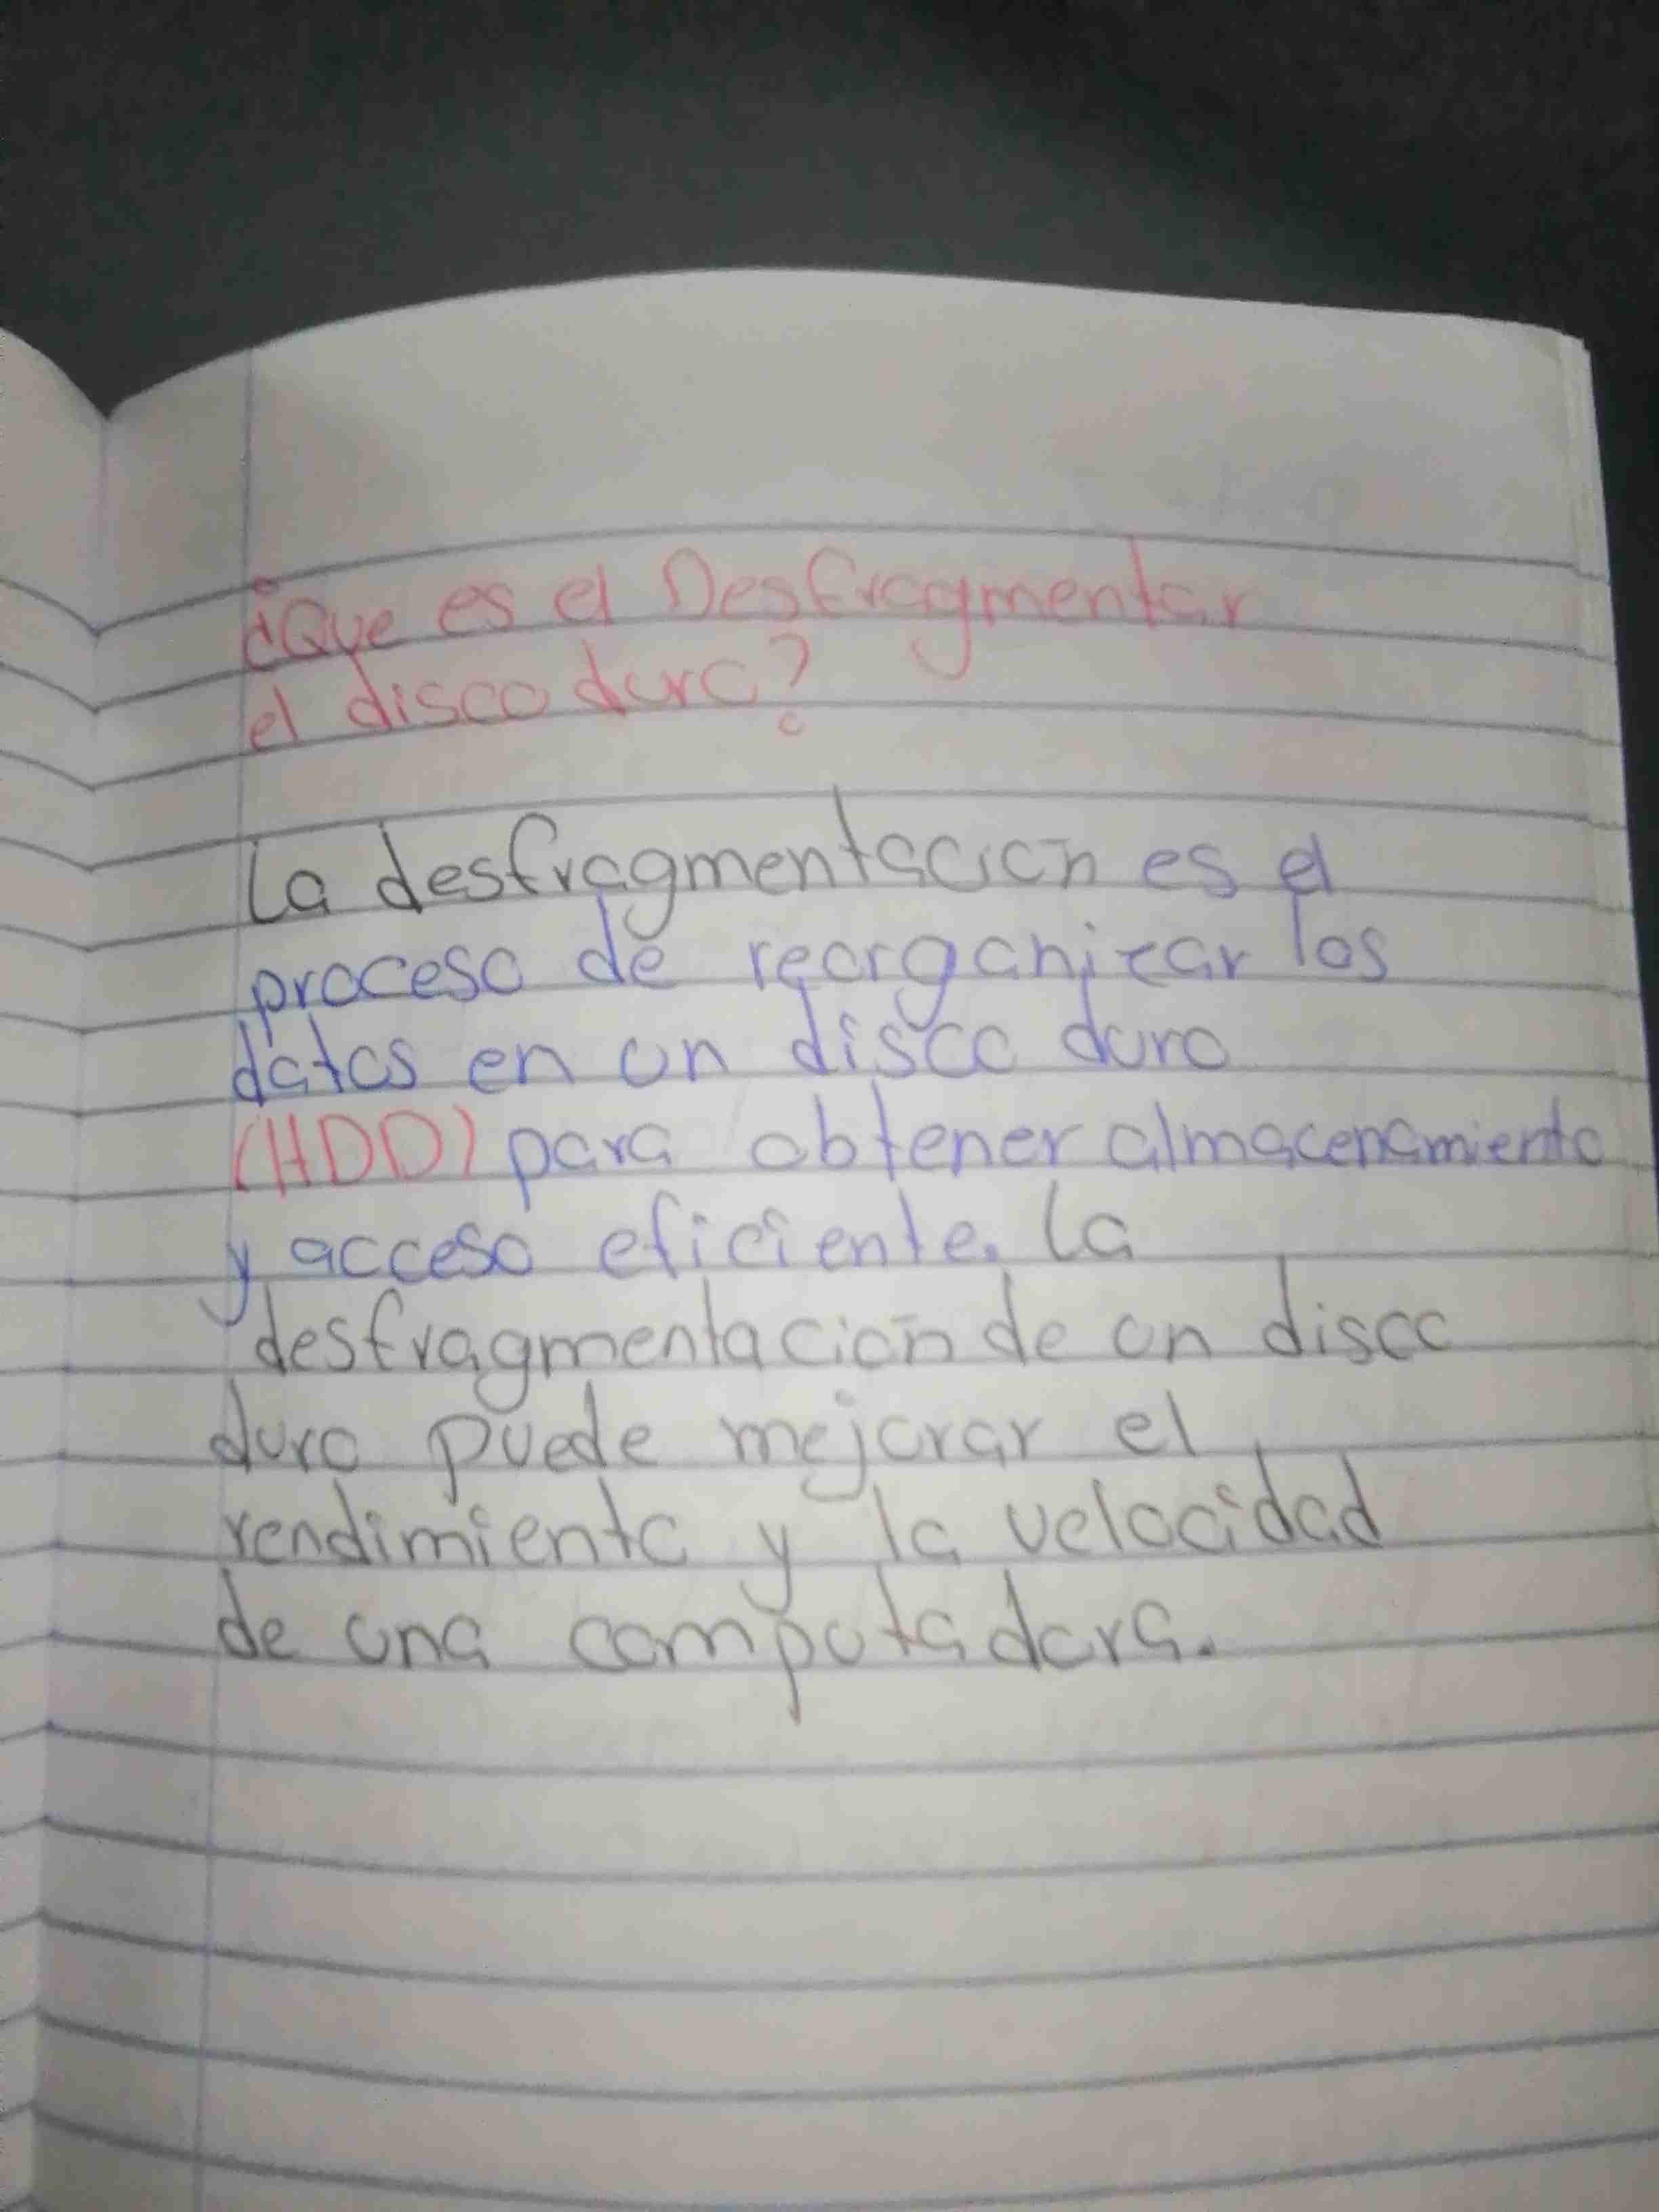 ¿Que es el Desfragmentar
el disco duro?
La desfragmentación es el
proceso de reorganizar los
datos en un disco duro
(HDD) para obtener almacenamiento
y acceso eficiente. La
desfragmentación de un disco
duro puede mejorar el
rendimiento y la velocidad
de una computadora.